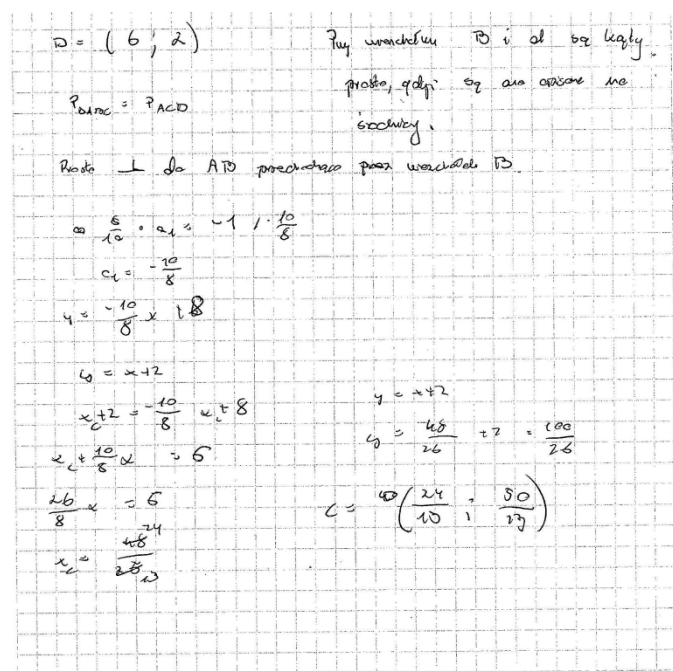 D = ( 6 ; 2 )
Przy wierzchołku B i d są kąty
proste, gdyż są one oparte na
średnicy.
P = P_ACD
Prosta ⊥ do AB przechodząca przez wierzchołek B.
8/10 · a₁ = -1 / · 10/8
a₁ = -10/8
y = -10/8 x + 8
y = x+2
x_c+2 = -10/8 x_c + 8
x_c + 10/8 x = 6
26/8 x = 6
x_c = 48/26 24/13
y = x+2
y = 48/26 + 2 = 100/26
C = ( 24/13 ; 50/13 )